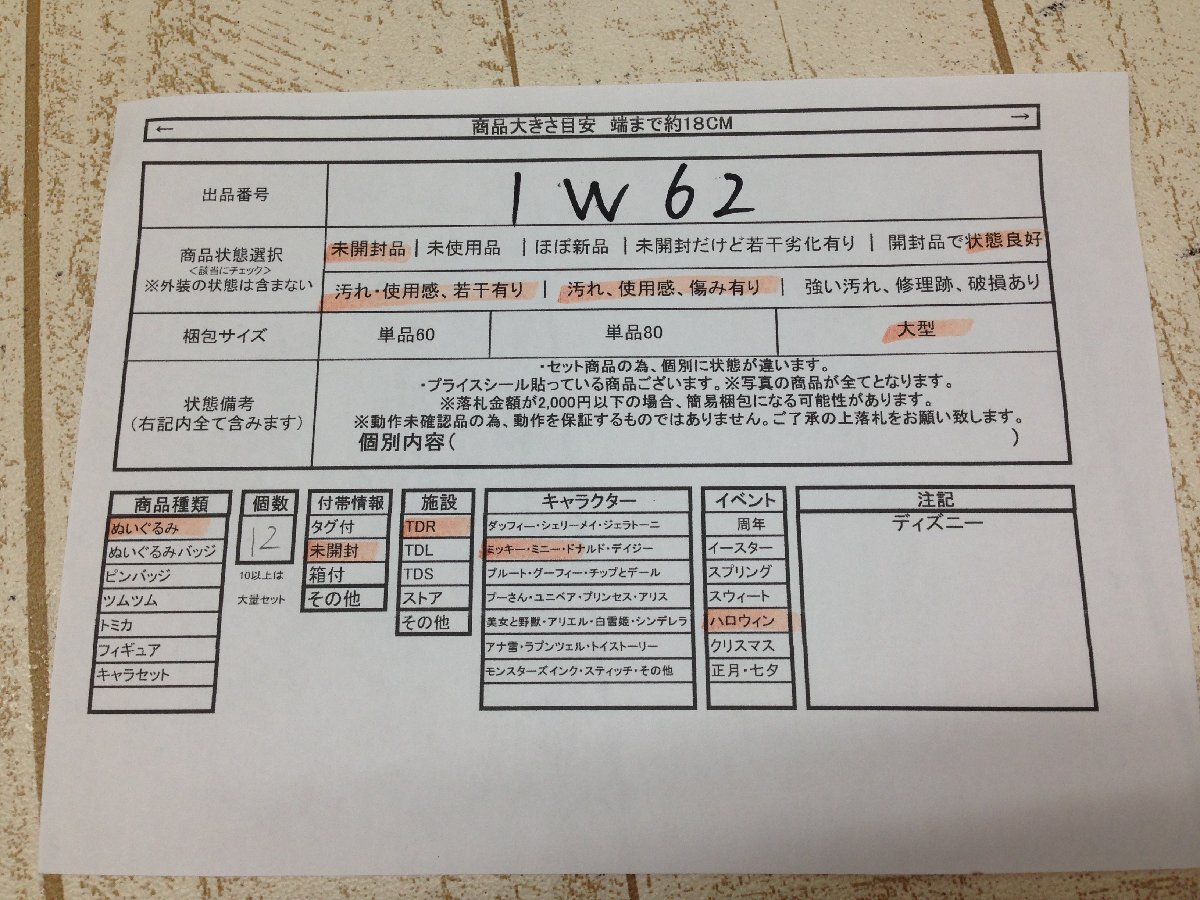 ← 商品大きさ目安 端まで約18CM →
出品番号 1 W 62
商品状態選択
<該当にチェック>
※外装の状態は含まない
未開封品 | 未使用品 | ほぼ新品 | 未開封だけど若干劣化有り | 開封品で状態良好
汚れ・使用感、若干有り | 汚れ、使用感、傷み有り | 強い汚れ、修理跡、破損あり
梱包サイズ 単品60 単品80 大型
状態備考
(右記内全て含みます)
・セット商品の為、個別に状態が違います。
・プライスシール貼っている商品ございます。※写真の商品が全てとなります。
※落札金額が2,000円以下の場合、簡易梱包になる可能性があります。
※動作未確認品の為、動作を保証するものではありません。ご了承の上落札をお願い致します。
個別内容( )
商品種類
ぬいぐるみ
ぬいぐるみバッジ
ピンバッジ
ツムツム
トミカ
フィギュア
キャラセット
個数
12
10以上は
大量セット
付帯情報
タグ付
未開封
箱付
その他
施設
TDR
TDL
TDS
ストア
その他
キャラクター
ダッフィー・シェリーメイ・ジェラトーニ
ミッキー・ミニー・ドナルド・デイジー
プルート・グーフィー・チップとデール
プーさん・ユニベア・プリンセス・アリス
美女と野獣・アリエル・白雪姫・シンデレラ
アナ雪・ラプンツェル・トイストーリー
モンスターズインク・スティッチ・その他
イベント
周年
イースター
スプリング
スウィート
ハロウィン
クリスマス
正月・七夕
注記
ディズニー